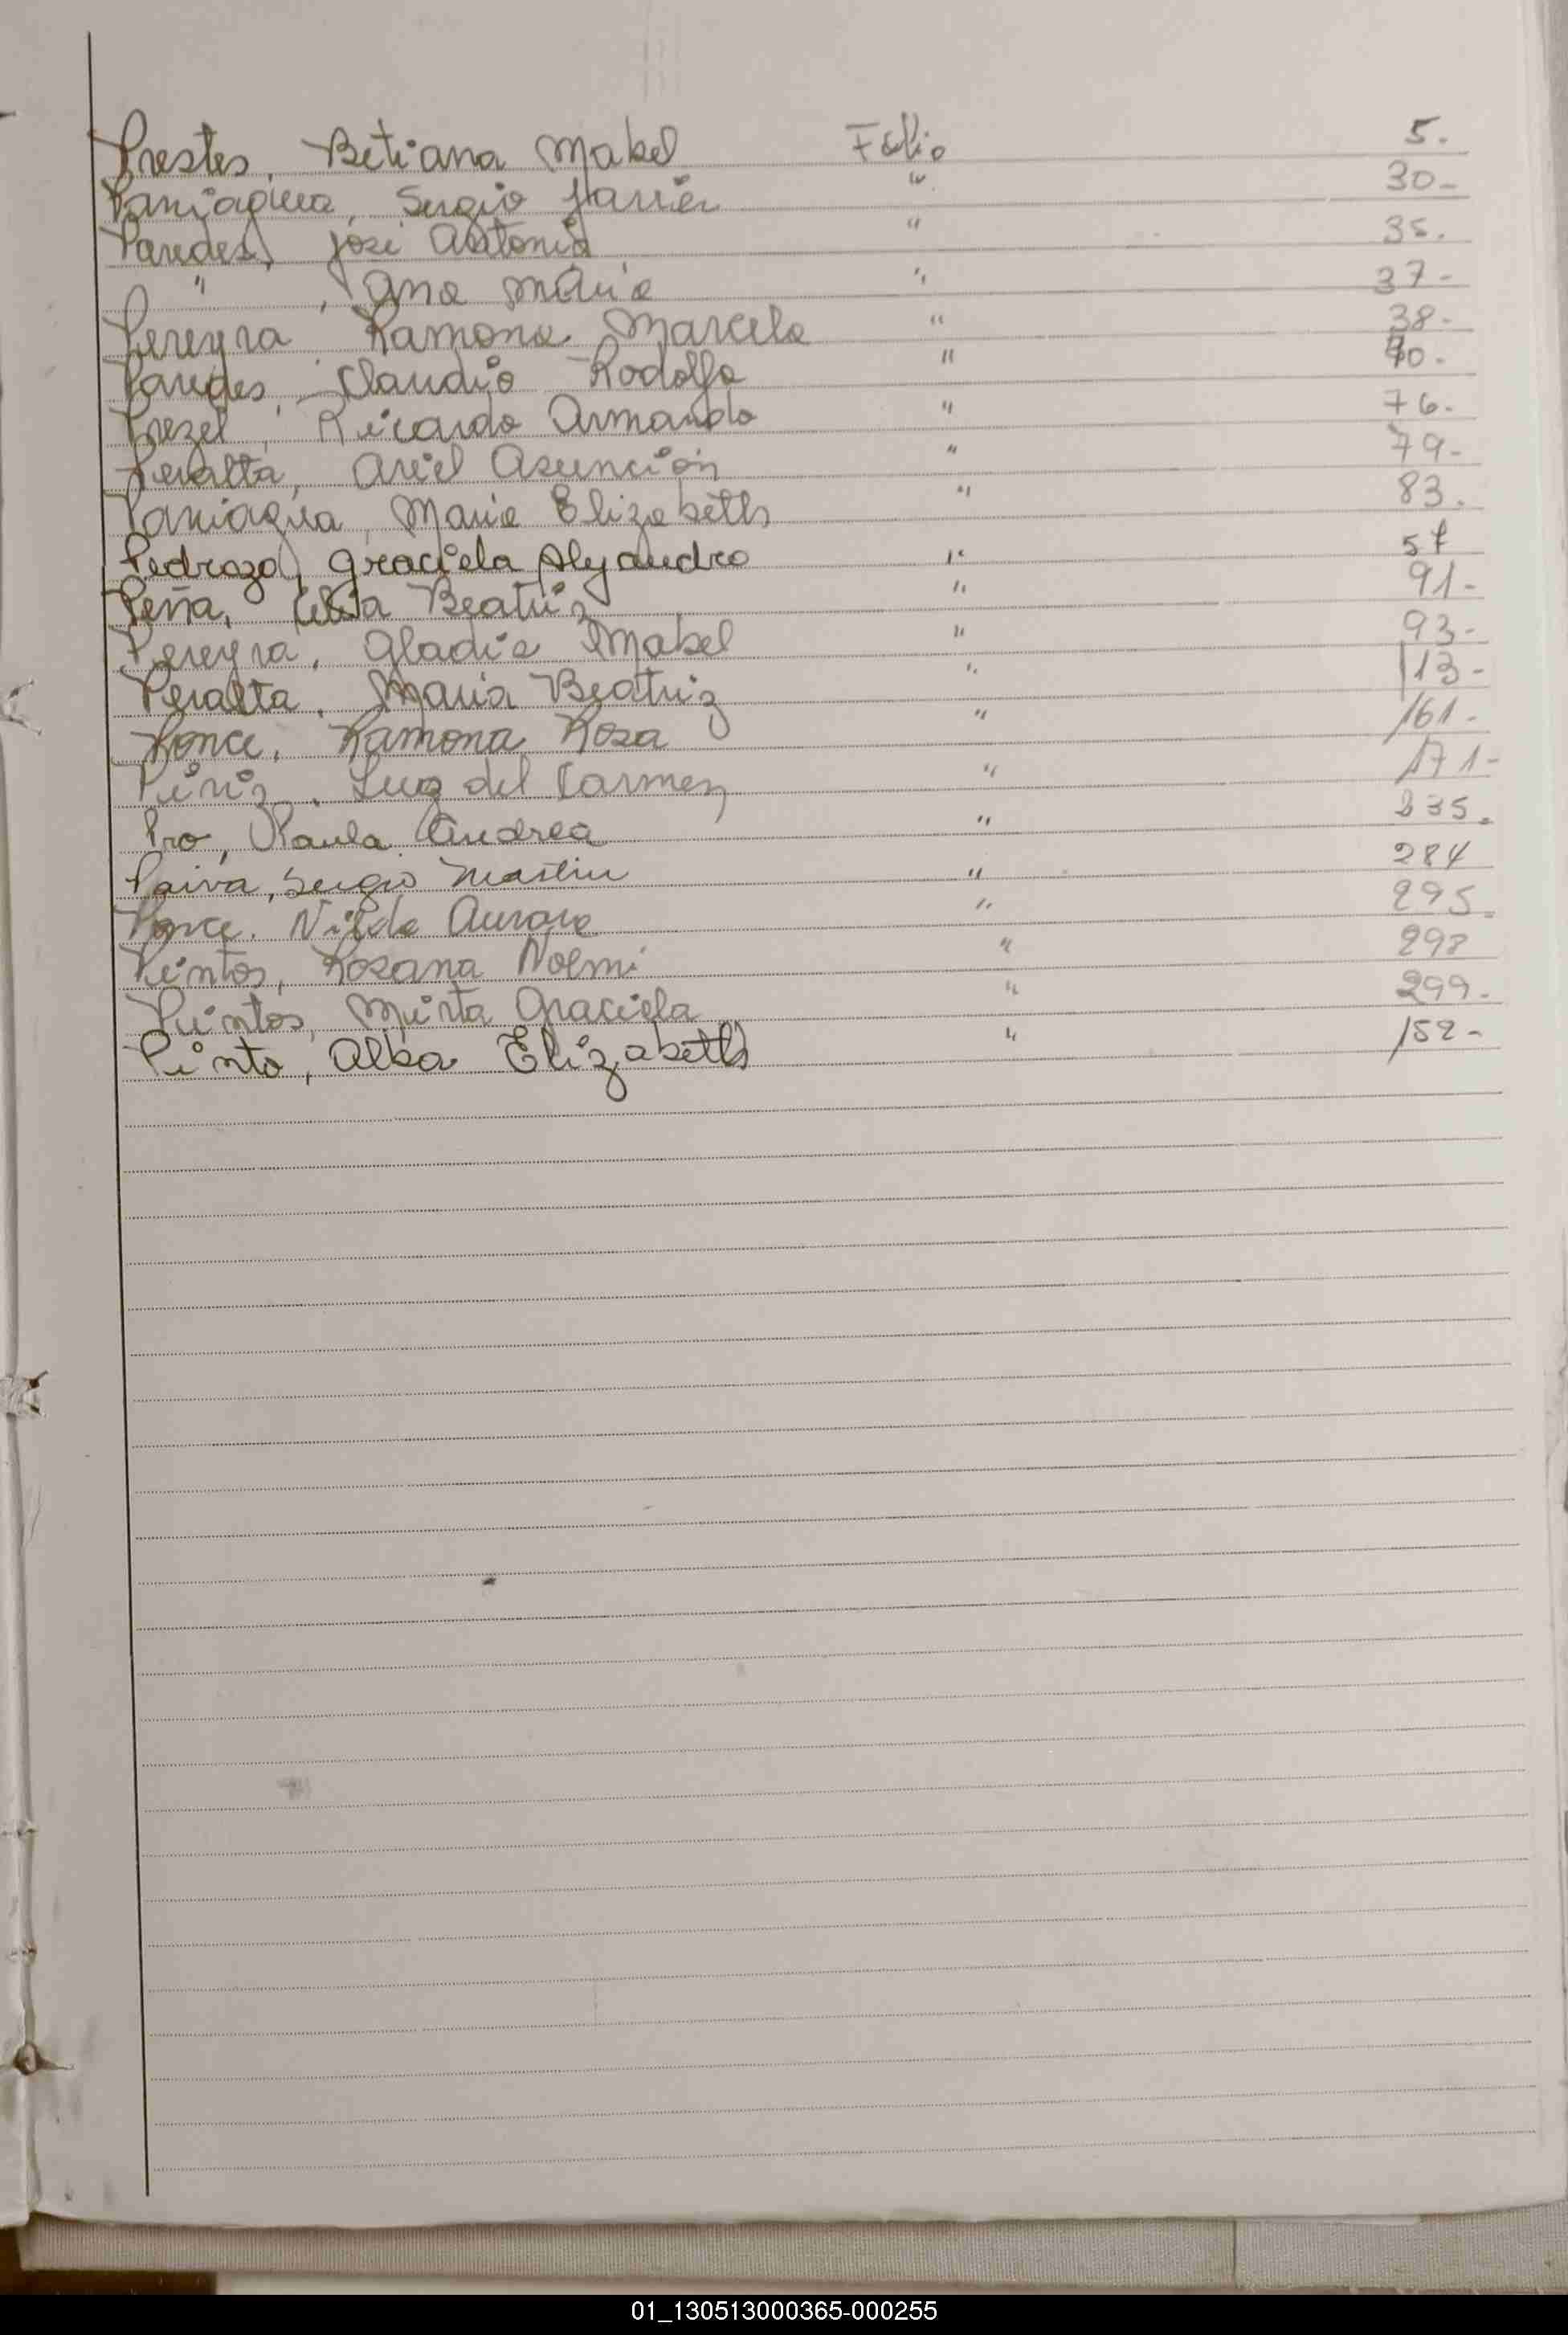 Prestes, Betiana Mabel Folio 5.
Paniagua, Sergio Javier " 30-
Paredes, José Antonio " 35.
" , Ana María " 37-
Pereyra Ramona Marcela " 38-
Paredes, Claudio Rodolfo " 40.
Prezel, Ricardo Armando " 76.
Peralta, Ariel Asunción " 79-
Paniagua, Maria Elizabeth " 83.
Pedrozo, Graciela Alejandro " 57
Peña, Celsa Beatriz " 91-
Pereyra, Gladis Mabel " 93-
Peralta, Maria Beatriz " 113-
Ponce, Ramona Rosa " 161-
Piriz, Luz del Carmen " 171-
Pro, Paula Andrea " 235.
Paiva, Sergio Martin " 284
Ponce. Nilda Aurora " 295.
Pintos, Rosana Noemi " 298
Pintos, Mirta Graciela " 299-
Pinto, Alba Elizabeth " 152-
01_130513000365-000255